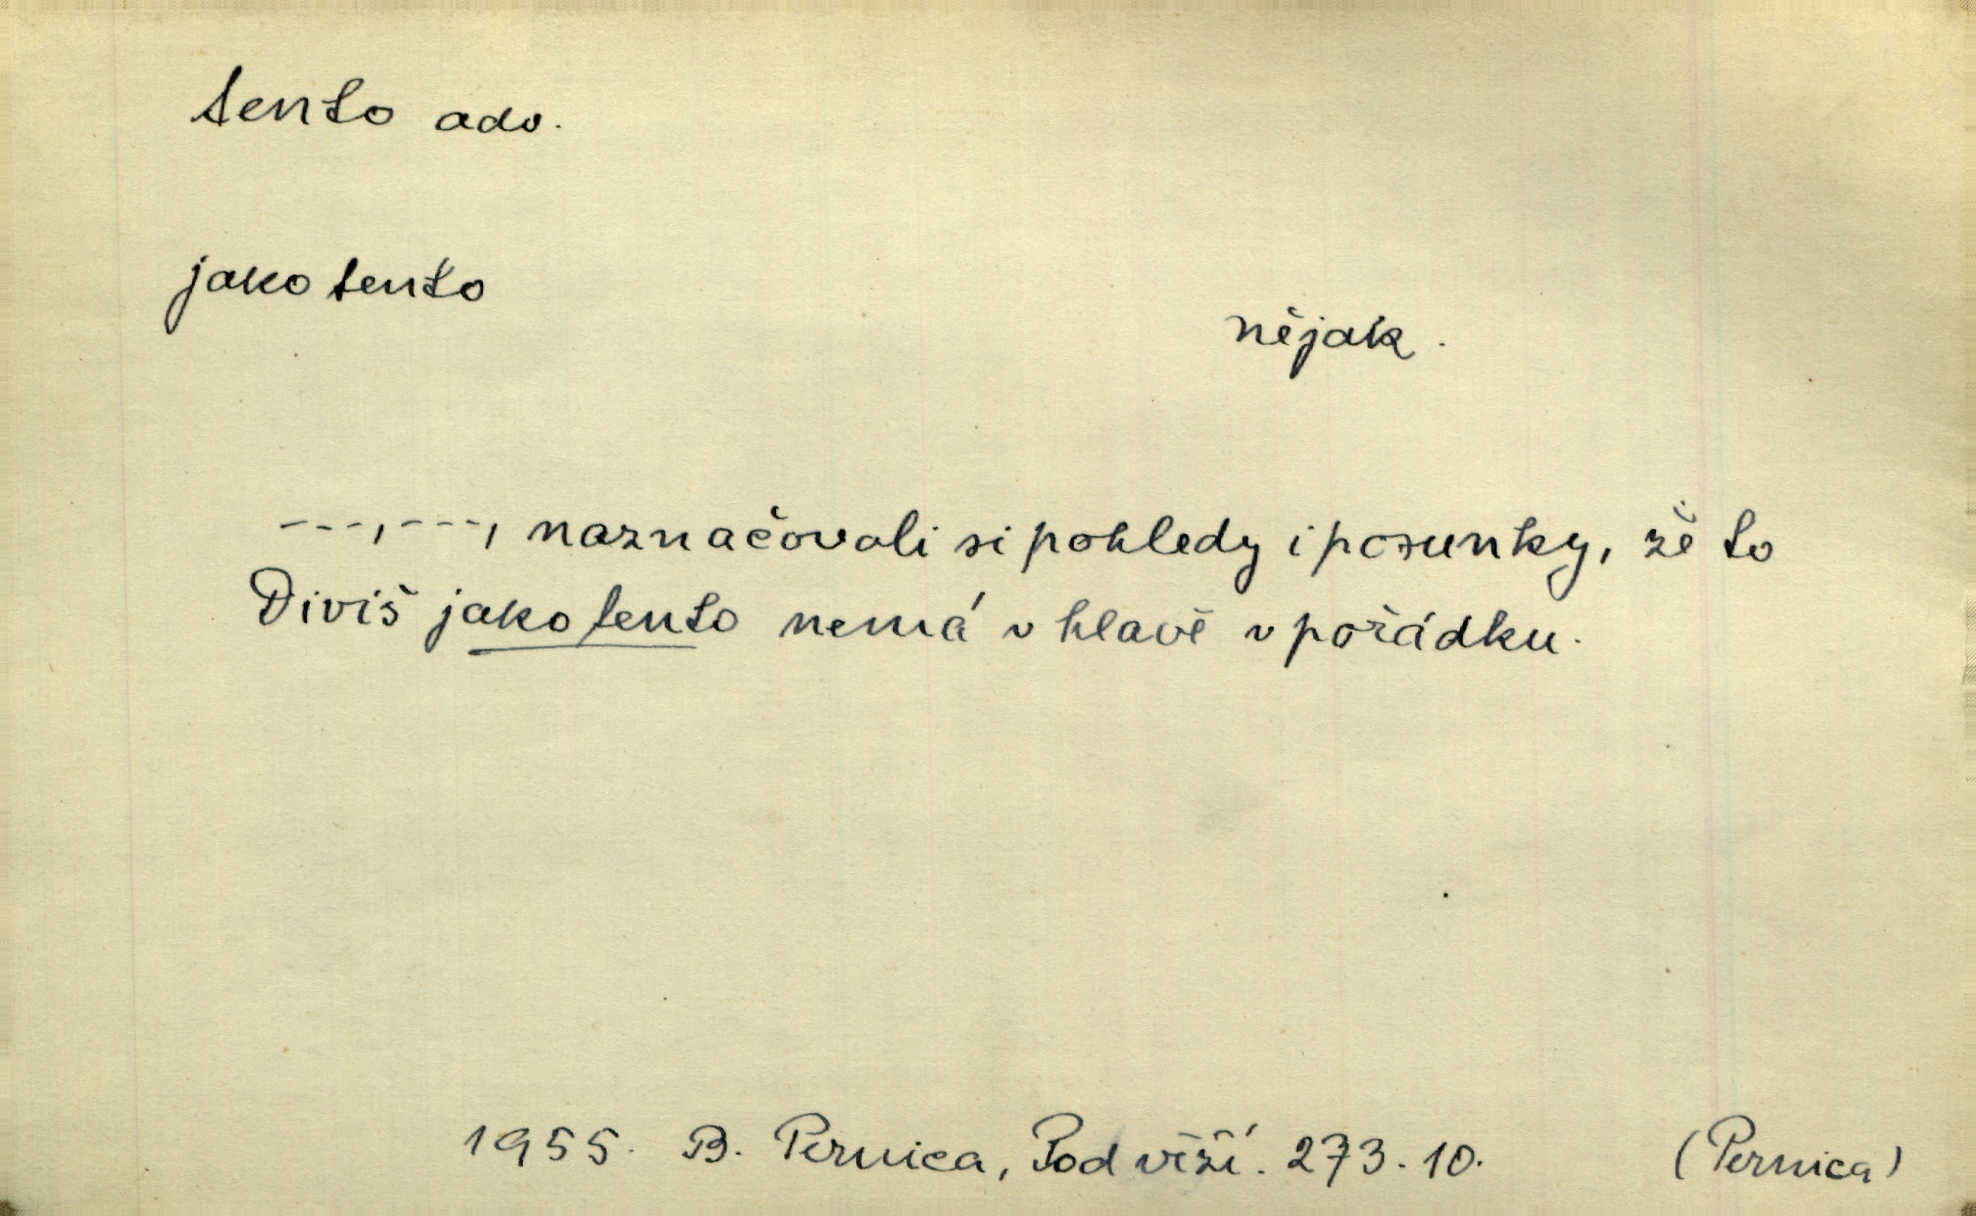 tento adv.
jako tento
nějak.
---,---, naznačovali si pohledy i posunky, že to
Diviš jako tento nemá v hlavě v pořádku.
1955. B. Pernica, Pod věží. 273. 10. (Pernica)